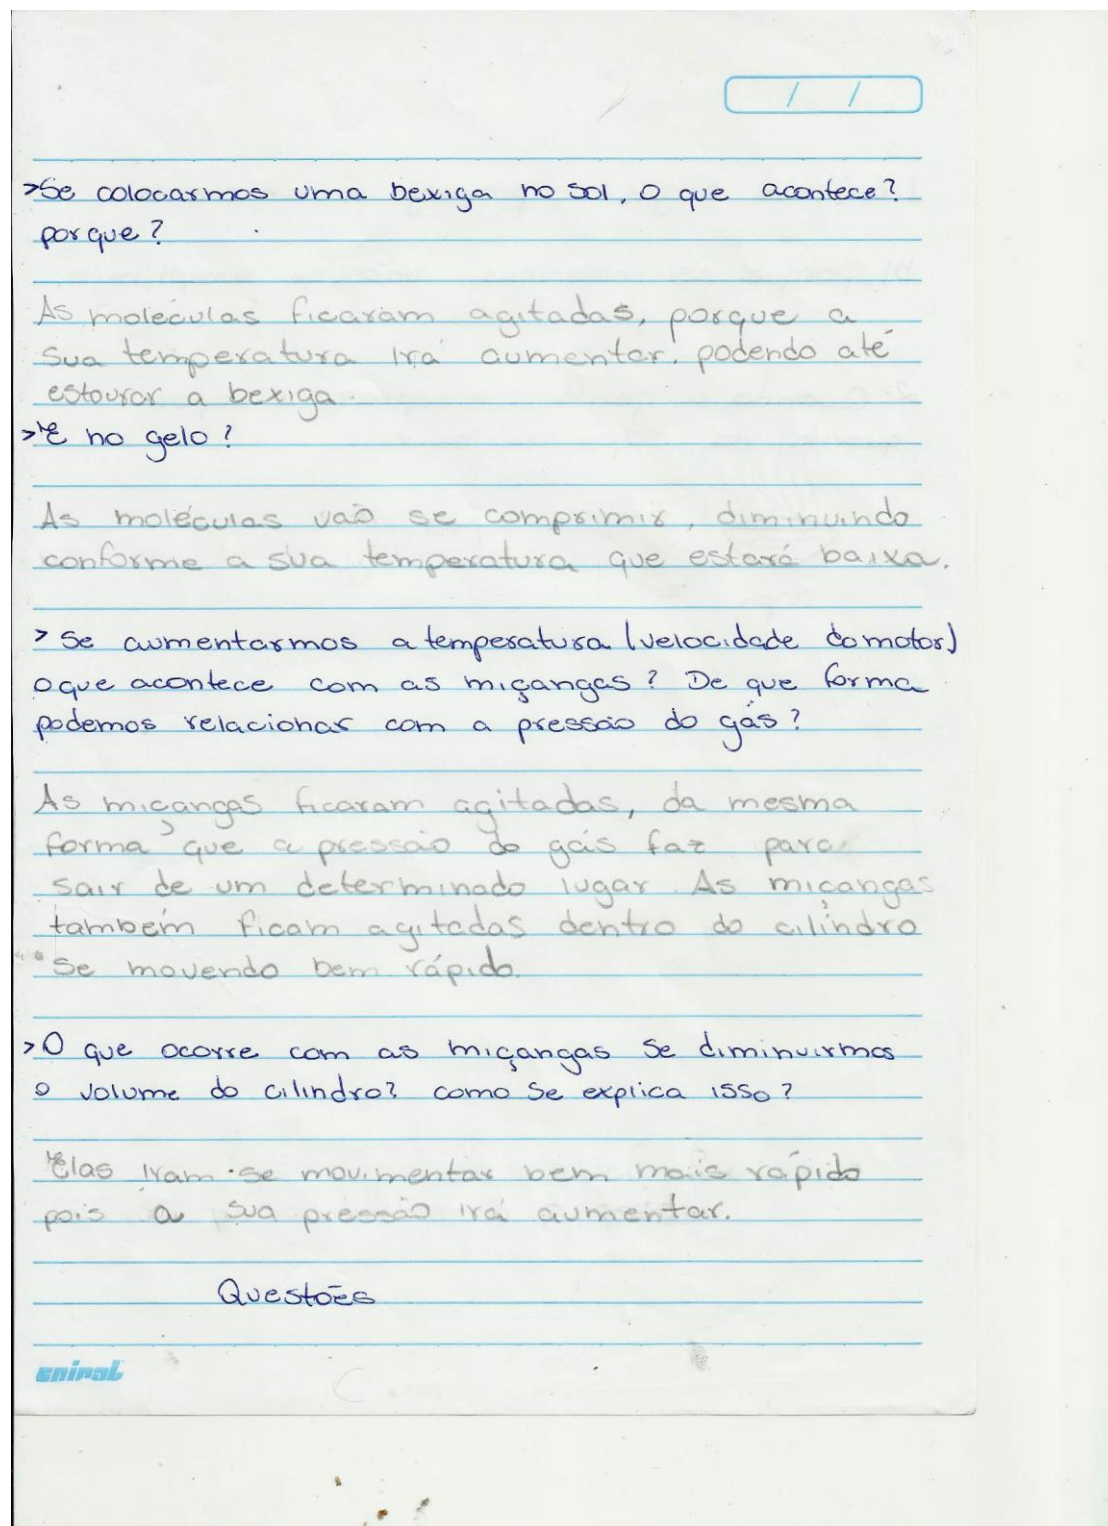 / /
>Se colocarmos uma bexiga no sol, o que acontece?
por que?
As moléculas ficaram agitadas, porque a
sua temperatura irá aumentar. podendo até
estourar a bexiga.
>E no gelo?
As moléculas vão se comprimir, diminuindo
conforme a sua temperatura que estará baixa.
> Se aumentarmos a temperatura (velocidade do motor)
o que acontece com as miçangas? De que forma
podemos relacionar com a pressão do gás?
As miçangas ficaram agitadas, da mesma
forma que a pressão do gás faz para
sair de um determinado lugar. As miçangas
também ficam agitadas dentro do cilíndro
se movendo bem rápido.
>O que ocorre com as miçangas se diminuirmos
o volume do cilindro? como se explica isso?
Elas iram se movimentar bem mais rápido
pois a sua pressão irá aumentar.
Questões